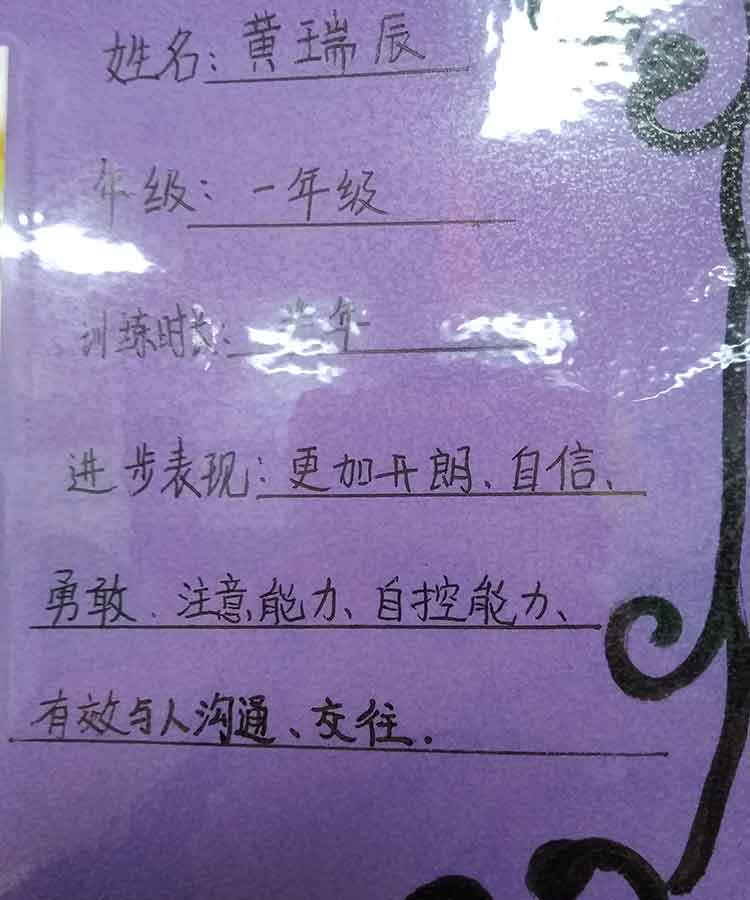 姓名：黄瑞辰
年级：一年级
训练时长：半年
进步表现：更加开朗、自信、
勇敢、注意能力、自控能力、
有效与人沟通、交往.